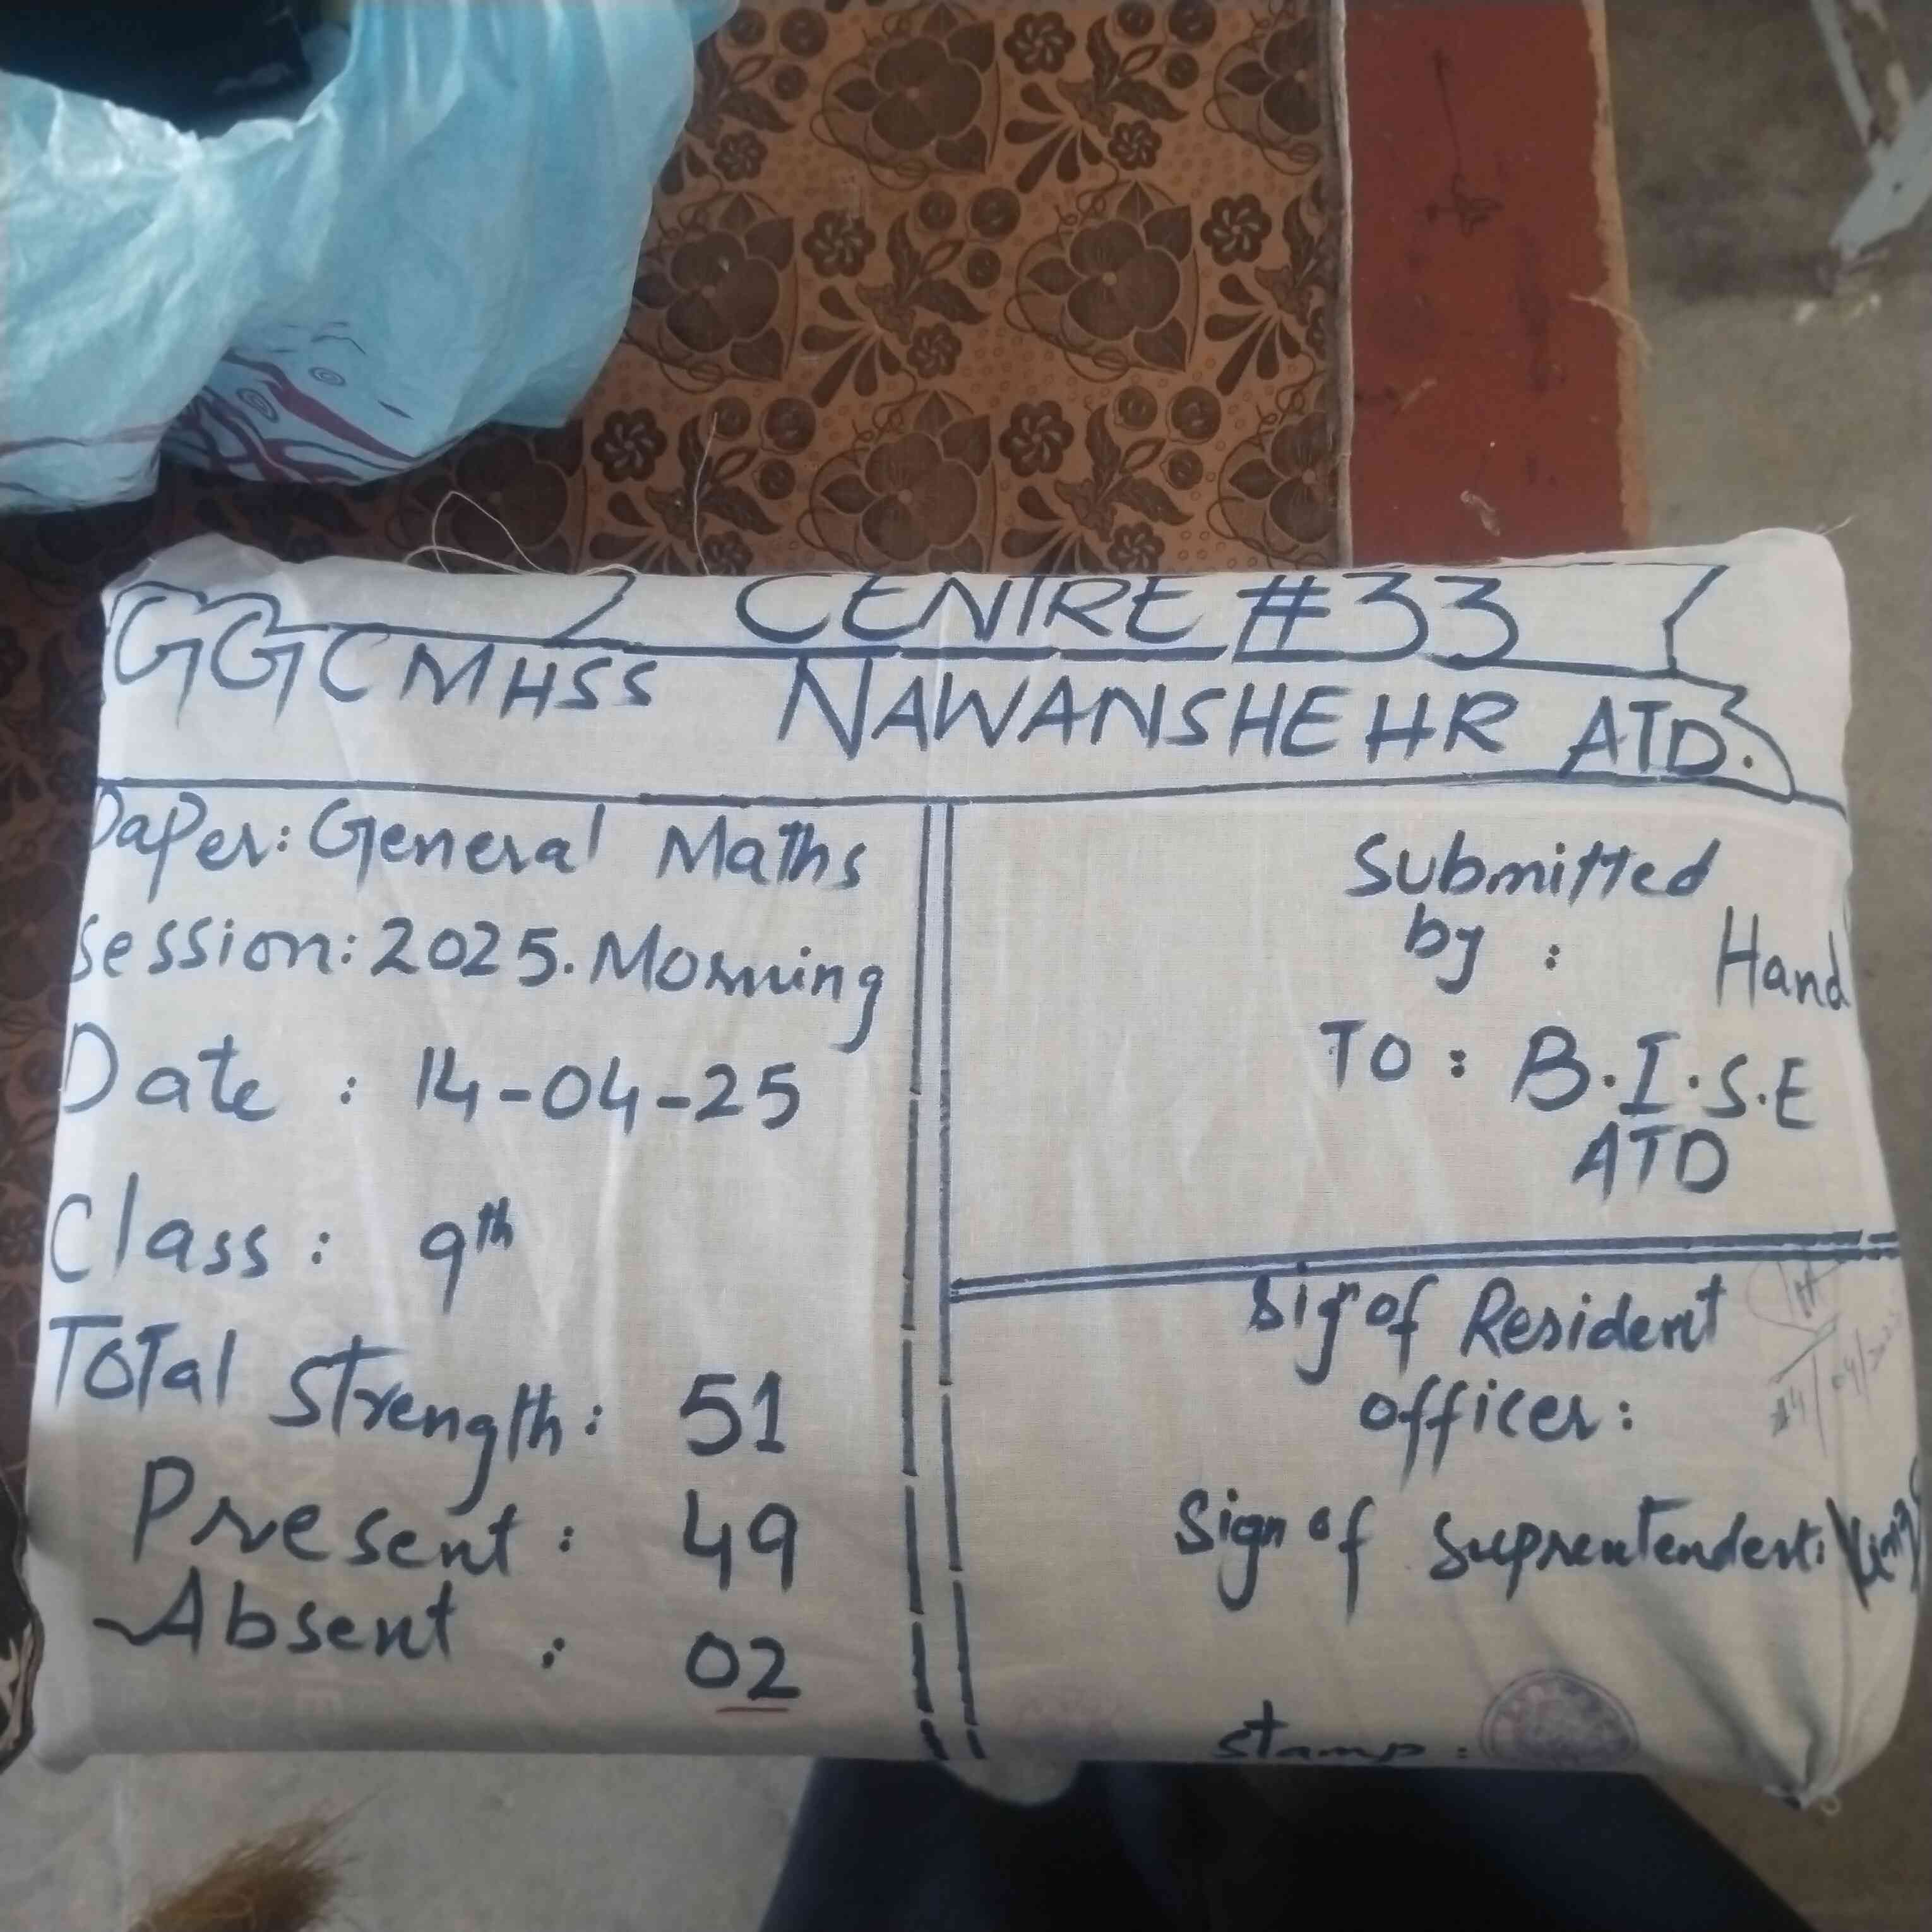 CENTRE #33
GGCMHSS NAWANSHEHR ATD.
Paper: General Maths
Session: 2025. Morning
Date : 14-04-25
Class : 9th
Total Strength: 51
Present : 49
Absent : 02
Submitted
by : Hand
TO : B.I.S.E
ATD
Sign of Resident
officer:
Sign of Suprentendent:
Stamp :